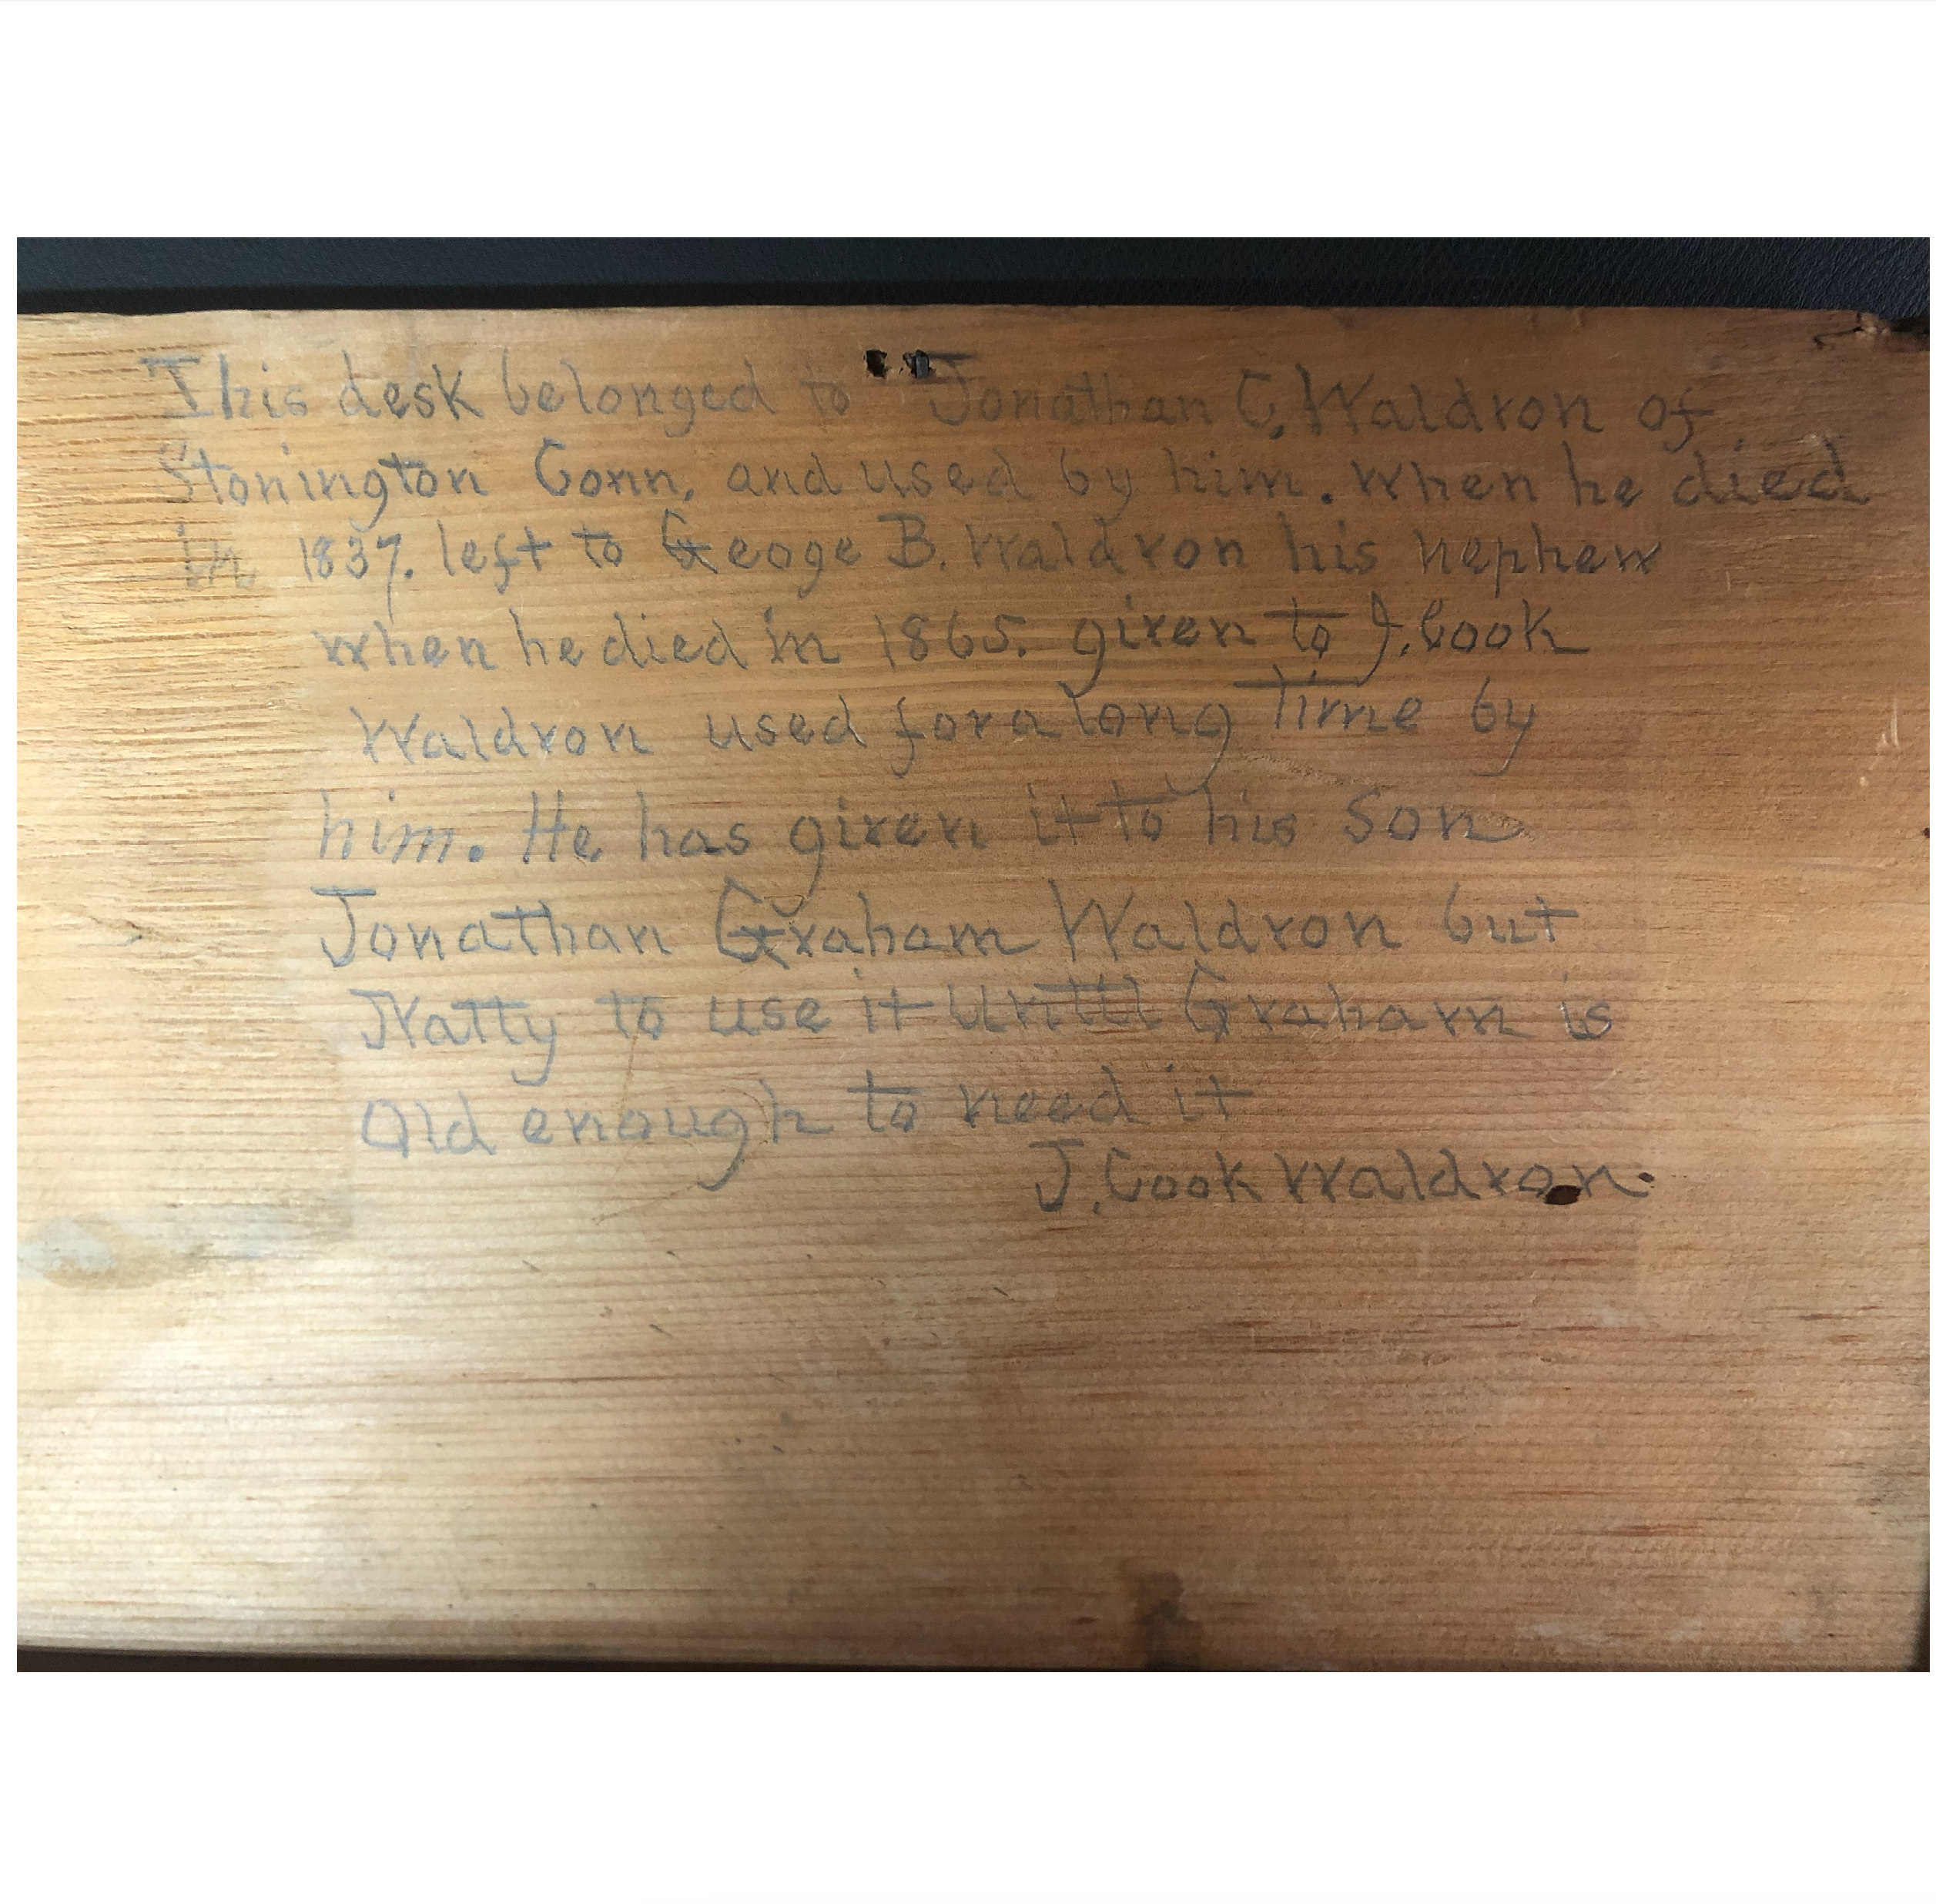 This desk belonged to Jonathan C. Waldron of
Stonington Conn, and used by him. when he died
in 1837. left to Geoge B. Waldron his nephew
when he died in 1865. given to J. Cook
Waldron used for a long Time by
him. He has given it to his Son
Jonathan Graham Waldron but
Natty to use it Untill Graham is
Old enough to need it
J. Cook Waldron.